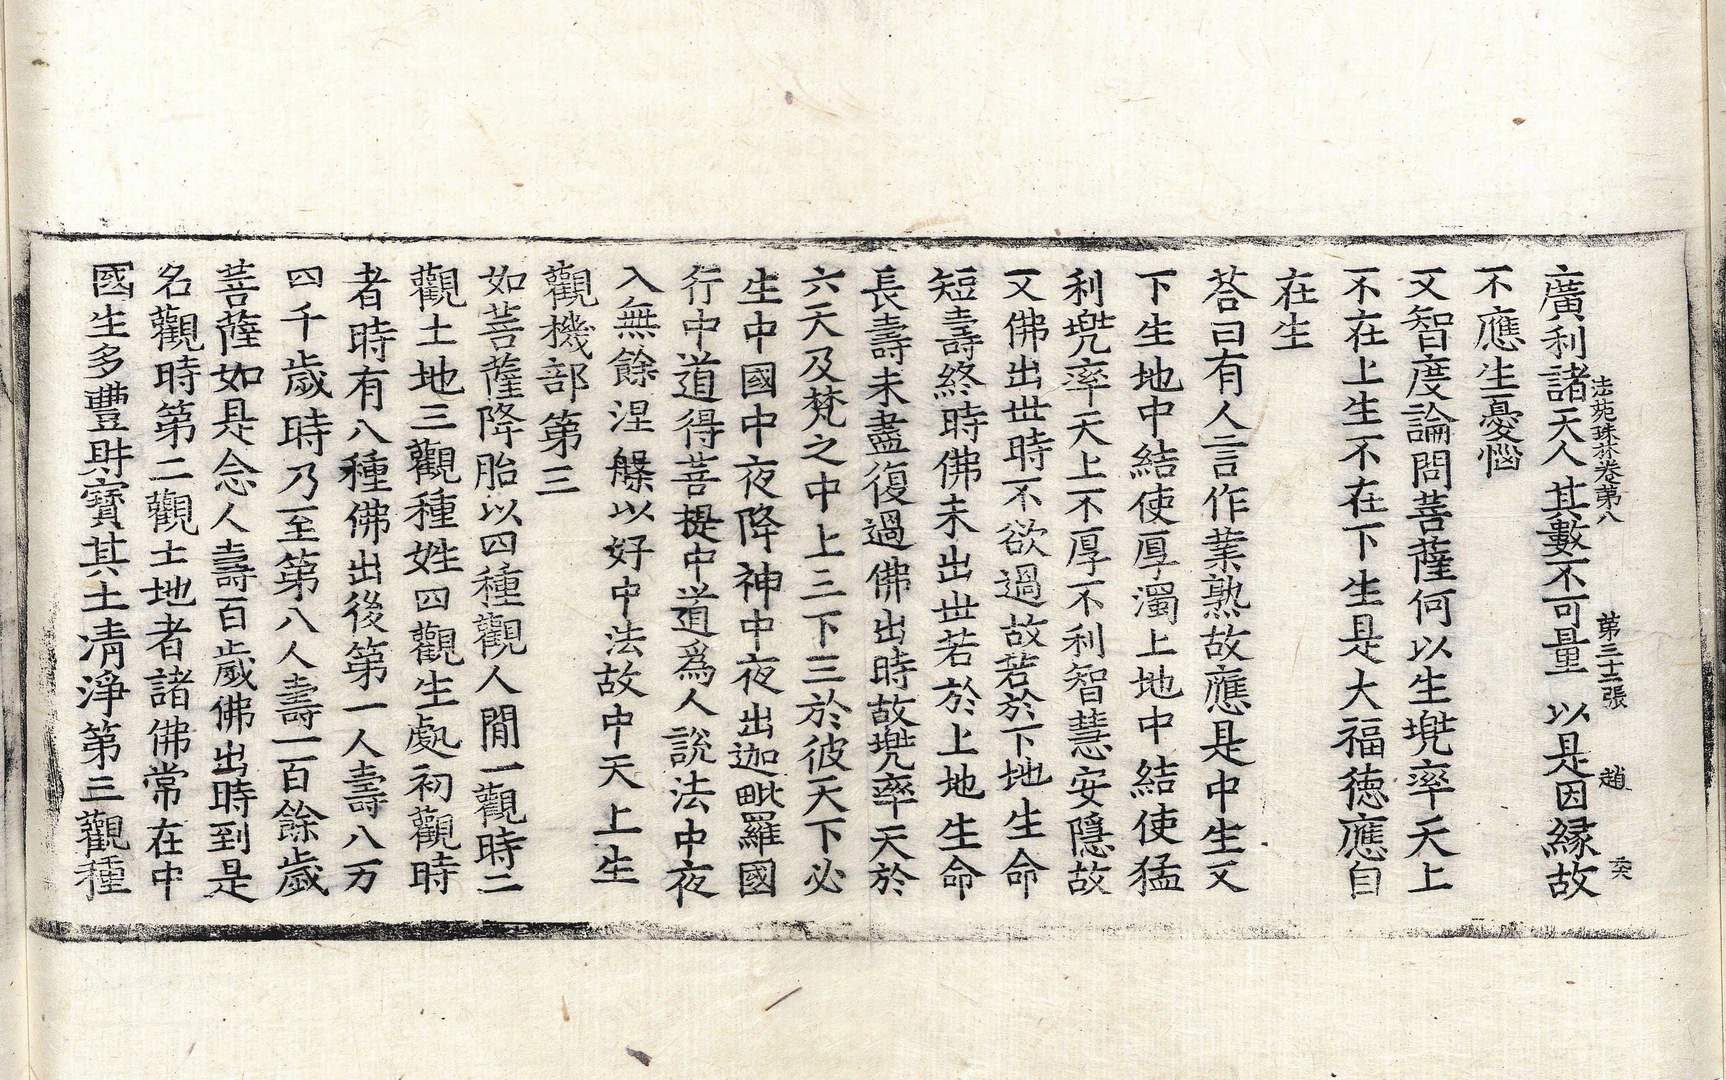 法苑珠林卷第八 第三十二張 趙
廣利諸天人其數不可量以是因縁故
不應生憂惱
又智度論問菩薩何以生兠率天上
不在上生不在下生是大福德應自
在生
荅曰有人言作業熟故應是中生又
下生地中結使厚濁上地中結使猛
利兠率天上不厚不利智慧安隱故
又佛出世時不欲過故若於下地生命
短壽終時佛未出世若於上地生命
長壽未盡復過佛出時故兠率天於
六天及梵之中上三下三於彼天下必
生中國中夜降神中夜出迦毗羅國
行中道得菩提中道爲人說法中夜
入無餘涅槃以好中法故中天上生
觀機部第三
如菩薩降胎以四種觀人閒一觀時二
觀土地三觀種姓四觀生處初觀時
者時有八種佛出後第一人壽八万
四千歲時乃至第八人壽一百餘歲
菩薩如是念人壽百歲佛出時到是
名觀時第二觀土地者諸佛常在中
國生多豐財寶其土清淨第三觀種